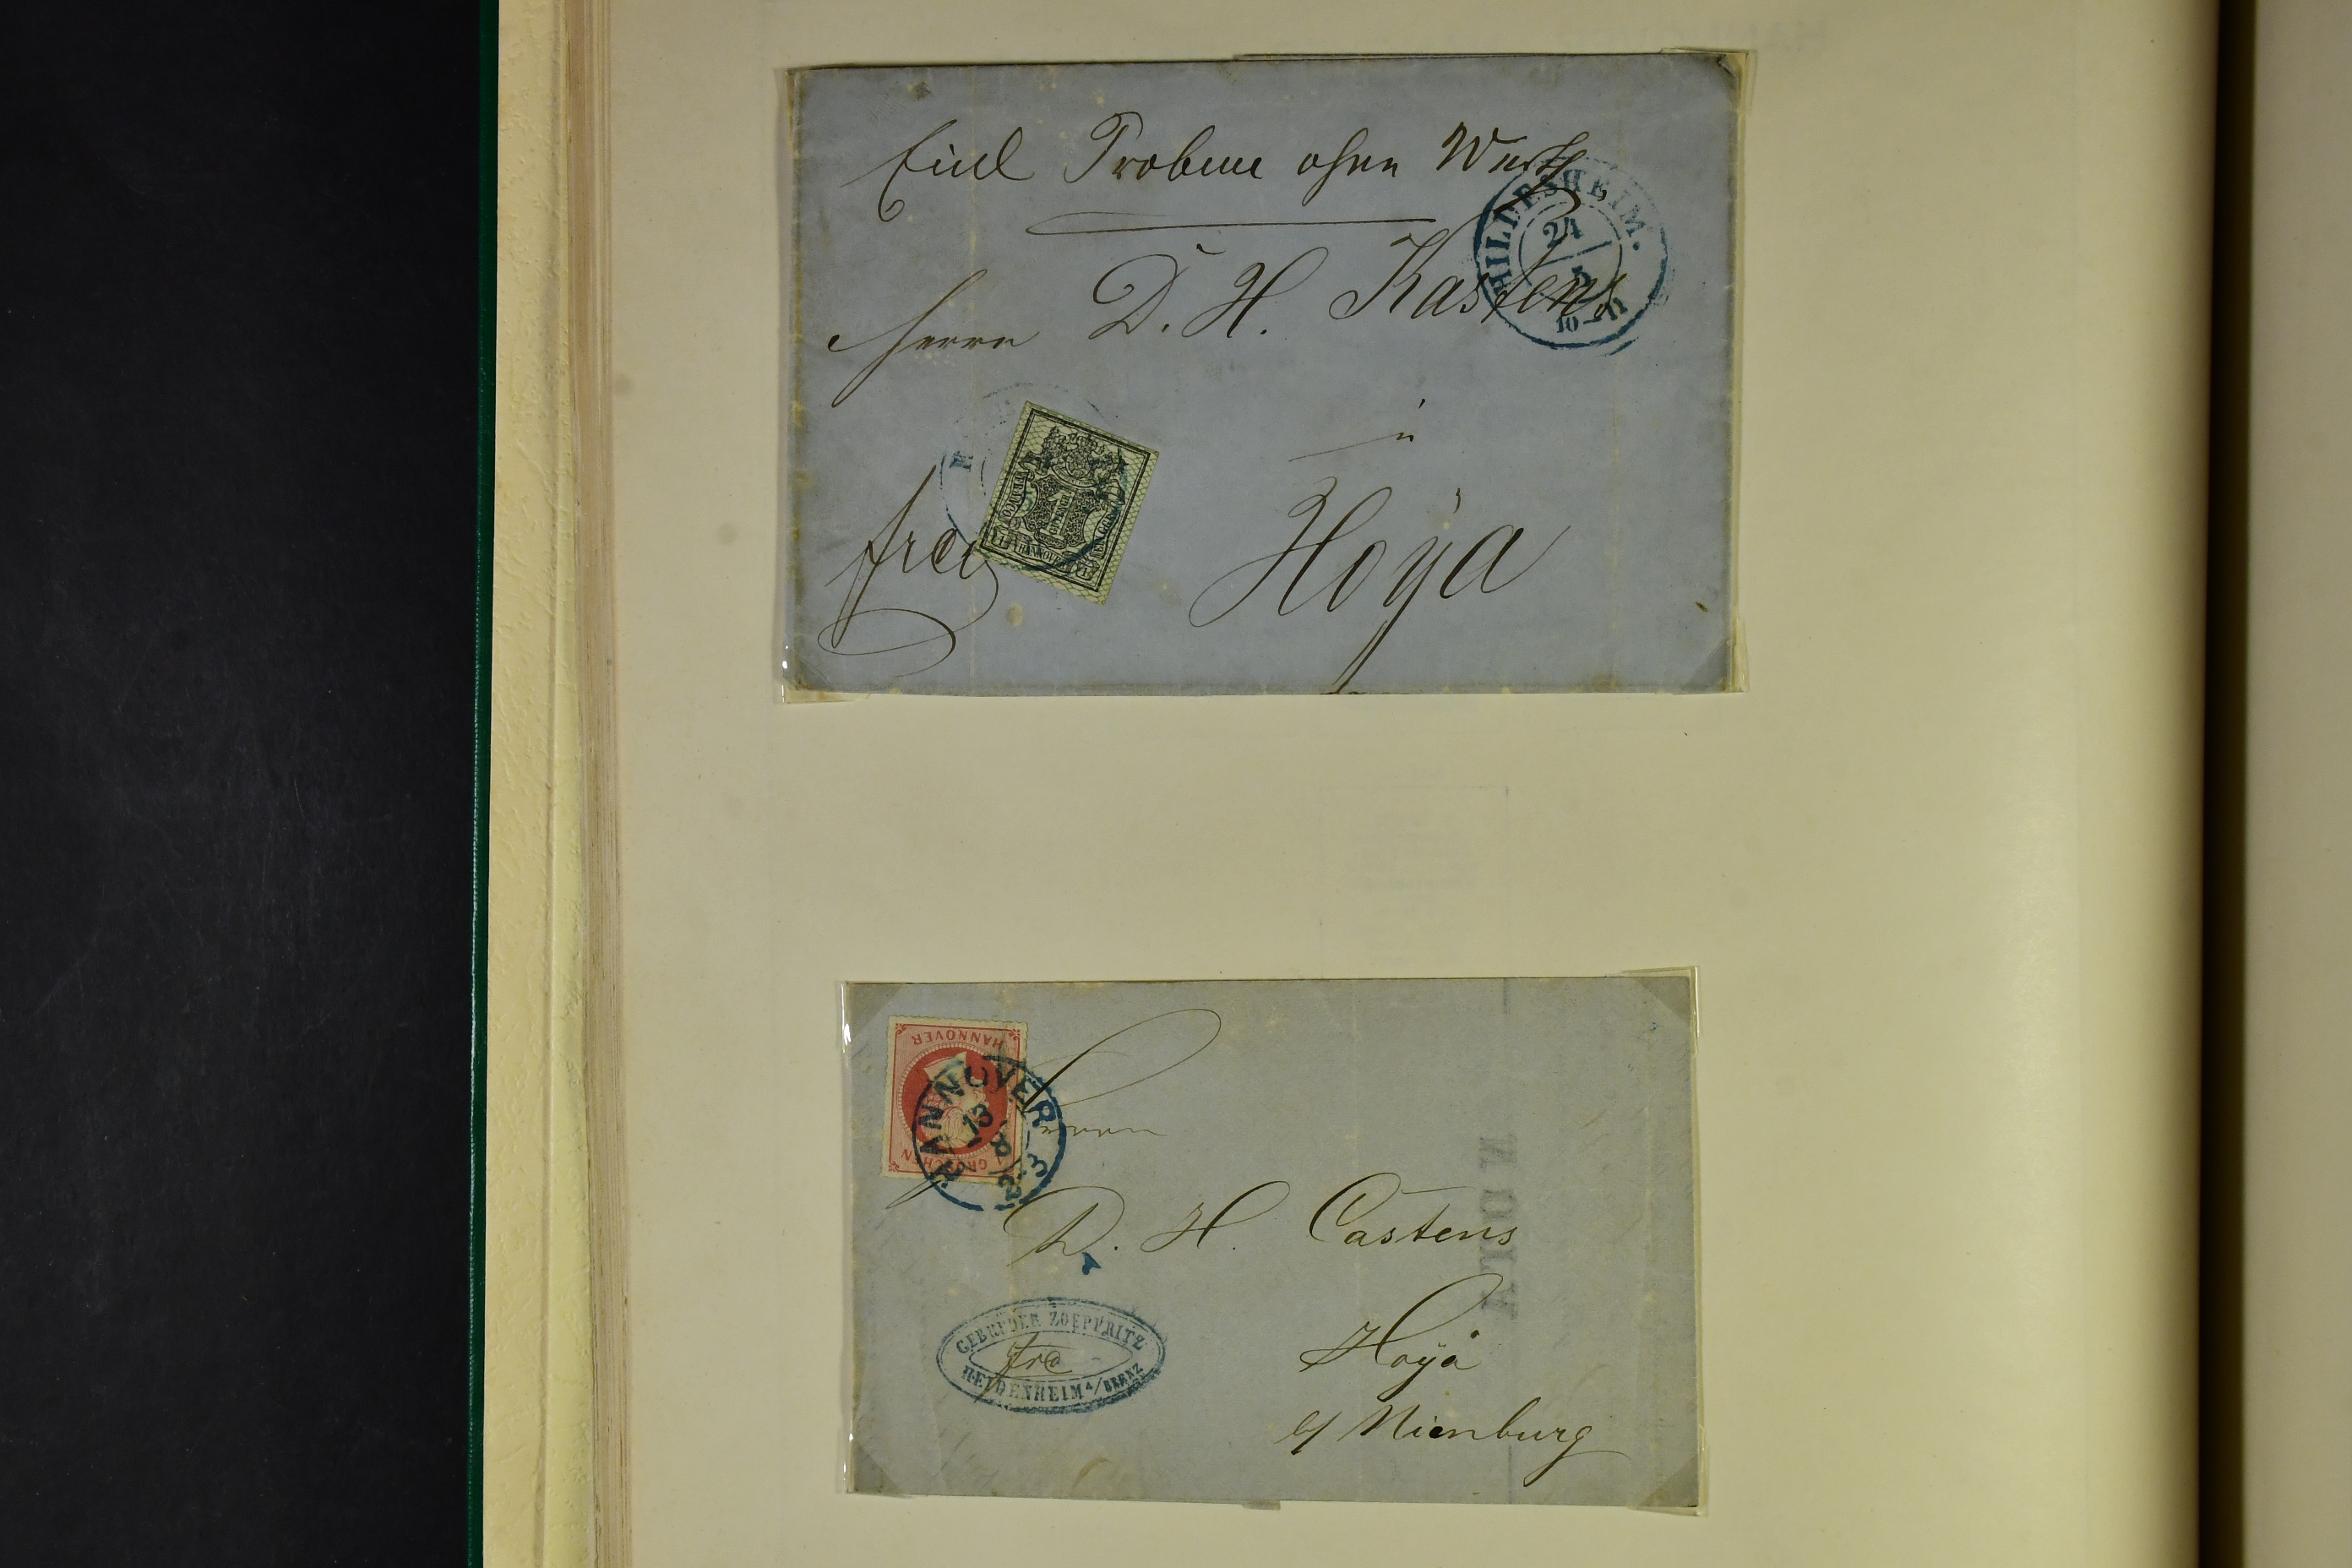 Einl Proben ohne Werth
HILDESHEIM.
24
5
10-11
Herrn D. H. Kastens
in
frco
1
HANNOVER
Hoya
HANNOVER
GROSCHEN
HANNOVER
13
8
2-3
Herrn
D. H. Castens
Hoya
b/ Nienburg
GEBRÜDER ZOEPPRITZ
frco
HEIDENHEIM A/BRENZ